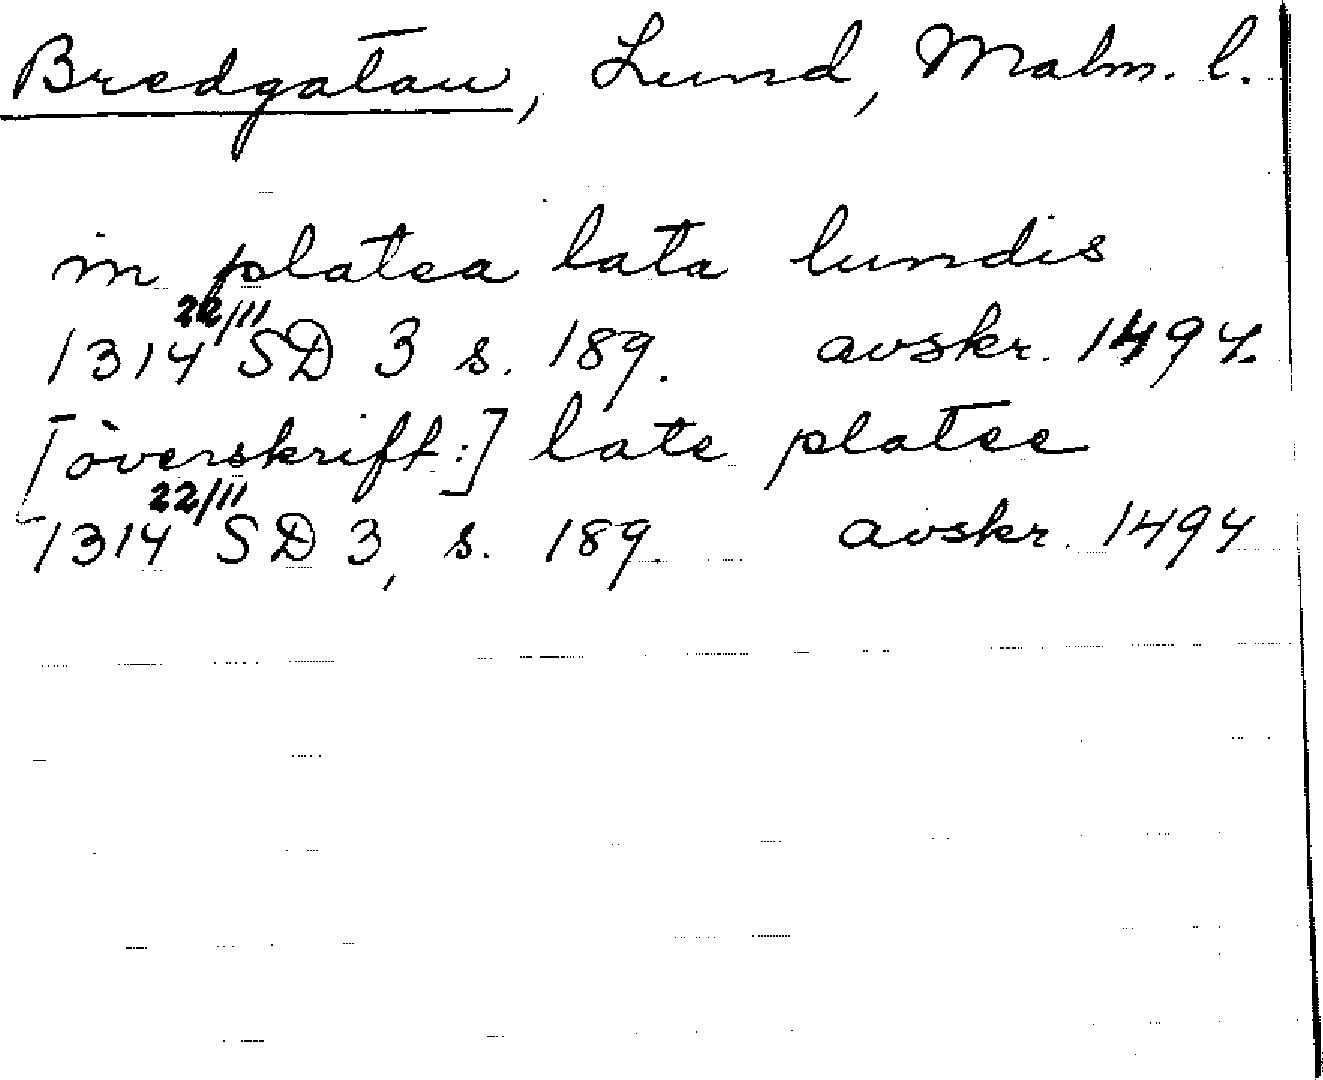 Bredgatan, Lund, Malm. l.
in platea lata lundis
1314 22/11 SD 3 s. 189. avskr. 1494
[överskrift:] late platee
1314 22/11 SD 3, s. 189. avskr. 1494